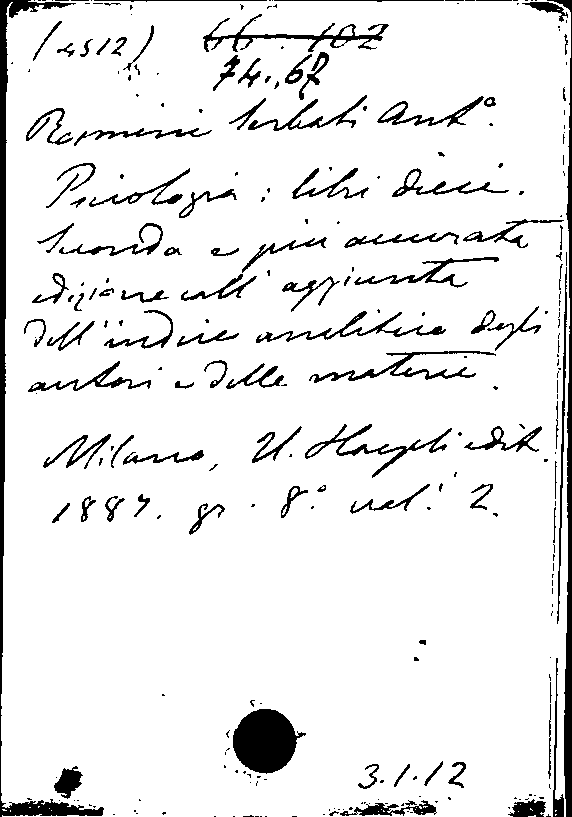 (4512) 66.102
74.67
Rosmini Serbati Ant°.
Psicologia : libri dieci.
Seconda e più accurata
edizione coll' aggiunta
dell'indice analitico degli
autori e delle materie.
Milano, U. Hoepli edit.
1887. gr. 8° vol! 2.
3.1.12